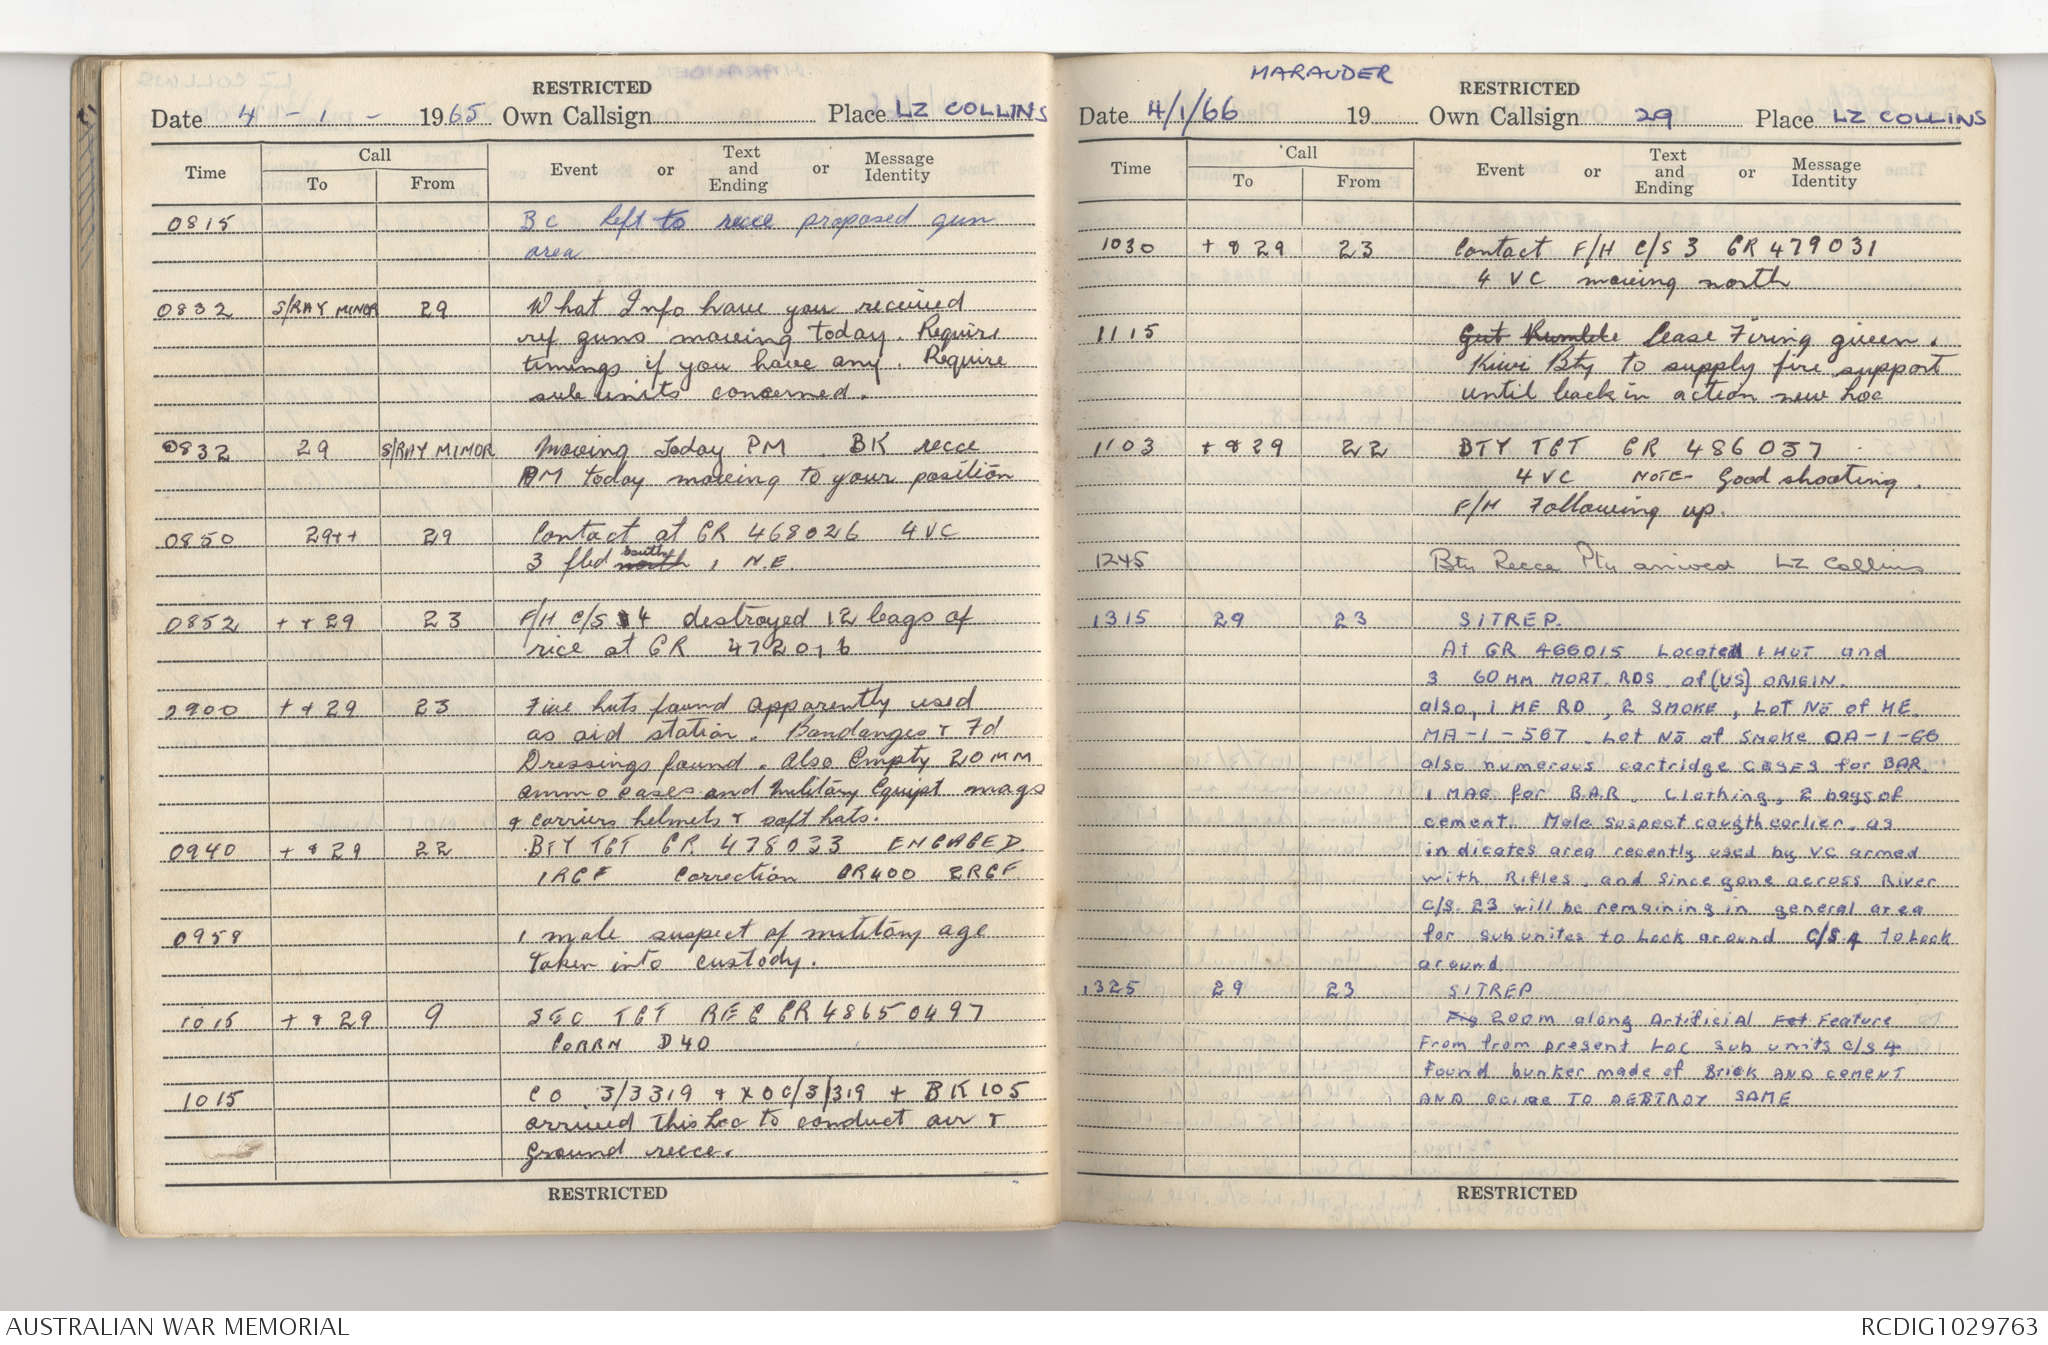 RESTRICTED
Date 4 - 1 - 1965 Own Callsign Place LZ COLLINS
Time Call To From Event or Text and Ending or Message Identity
0815 BC left to recce proposed gun
area
0832 S/RAY MINOR 29 What Info have you received
ref guns moving today. Require
timings if you have any. Require
sub units concerned.
0832 29 S/RAY MINOR Moving Today PM. BK recce
PM today moving to your position
0850 29++ 29 Contact at GR 468026 4 VC
3 fled north south 1 N.E.
0852 + + 29 23 F/H C/S 4 destroyed 12 bags of
rice at GR 472016
0900 + + 29 23 Five huts found apparently used
as aid station. Bandanges + Fd
Dressings found. Also Empty 20 MM
ammo cases and Military Equipt mags
& carriers helmets + soft hats.
0940 + + 29 22 BTY TGT GR. 478033 ENGAGED.
1RGF Correction DR400 2RGF
0958 1 male suspect of military age
taken into custody.
1015 + + 29 9 SEC TGT REG GR 48650497
CORRN D40
1015 CO 3/3319 + XO C/3/319 + BK 105
arrived This Loc to conduct air +
Ground recce.
RESTRICTED
MARAUDER
RESTRICTED
Date 4/1/66 19 Own Callsign 29 Place LZ COLLINS
Time Call To From Event or Text and Ending or Message Identity
1030 + + 29 23 Contact F/H C/S 3 GR 479031
4 VC moving north
1115 Gut Rumble Cease Firing given.
Kiwi Bty to supply fire support
until back in action new Loc
1103 + + 29 22 BTY TGT GR 486037
4 VC NOTE- Good shooting.
F/H Following up.
1245 Bty Recce Pty arrived LZ Collins
1315 29 23 SITREP.
At GR 466015 Located 1 HUT and
3 60 MM MORT. RDS. of (US) ORIGIN.
also, 1 HE RD, 2 SMOKE, LOT No of HE.
MA-1-567. Lot No of Smoke OA-1-66
also numerous cartridge CASES for BAR.
1 MAG. for BAR. Clothing, 2 bags of
cement. Male suspect caugth earlier, as
indicates area recently used by VC armed
with Rifles, and since gone across River
C/S. 23 will be remaining in general area
for sub unites to Look around C/S 4 to Look
around
1325 29 23 SITREP
Fig 200m along Artificial Fet Feature
From from present Loc sub units C/S 4
found bunker made of Brick AND CEMENT
AND going TO DESTROY SAME
RESTRICTED
AUSTRALIAN WAR MEMORIAL
RCDIG1029763